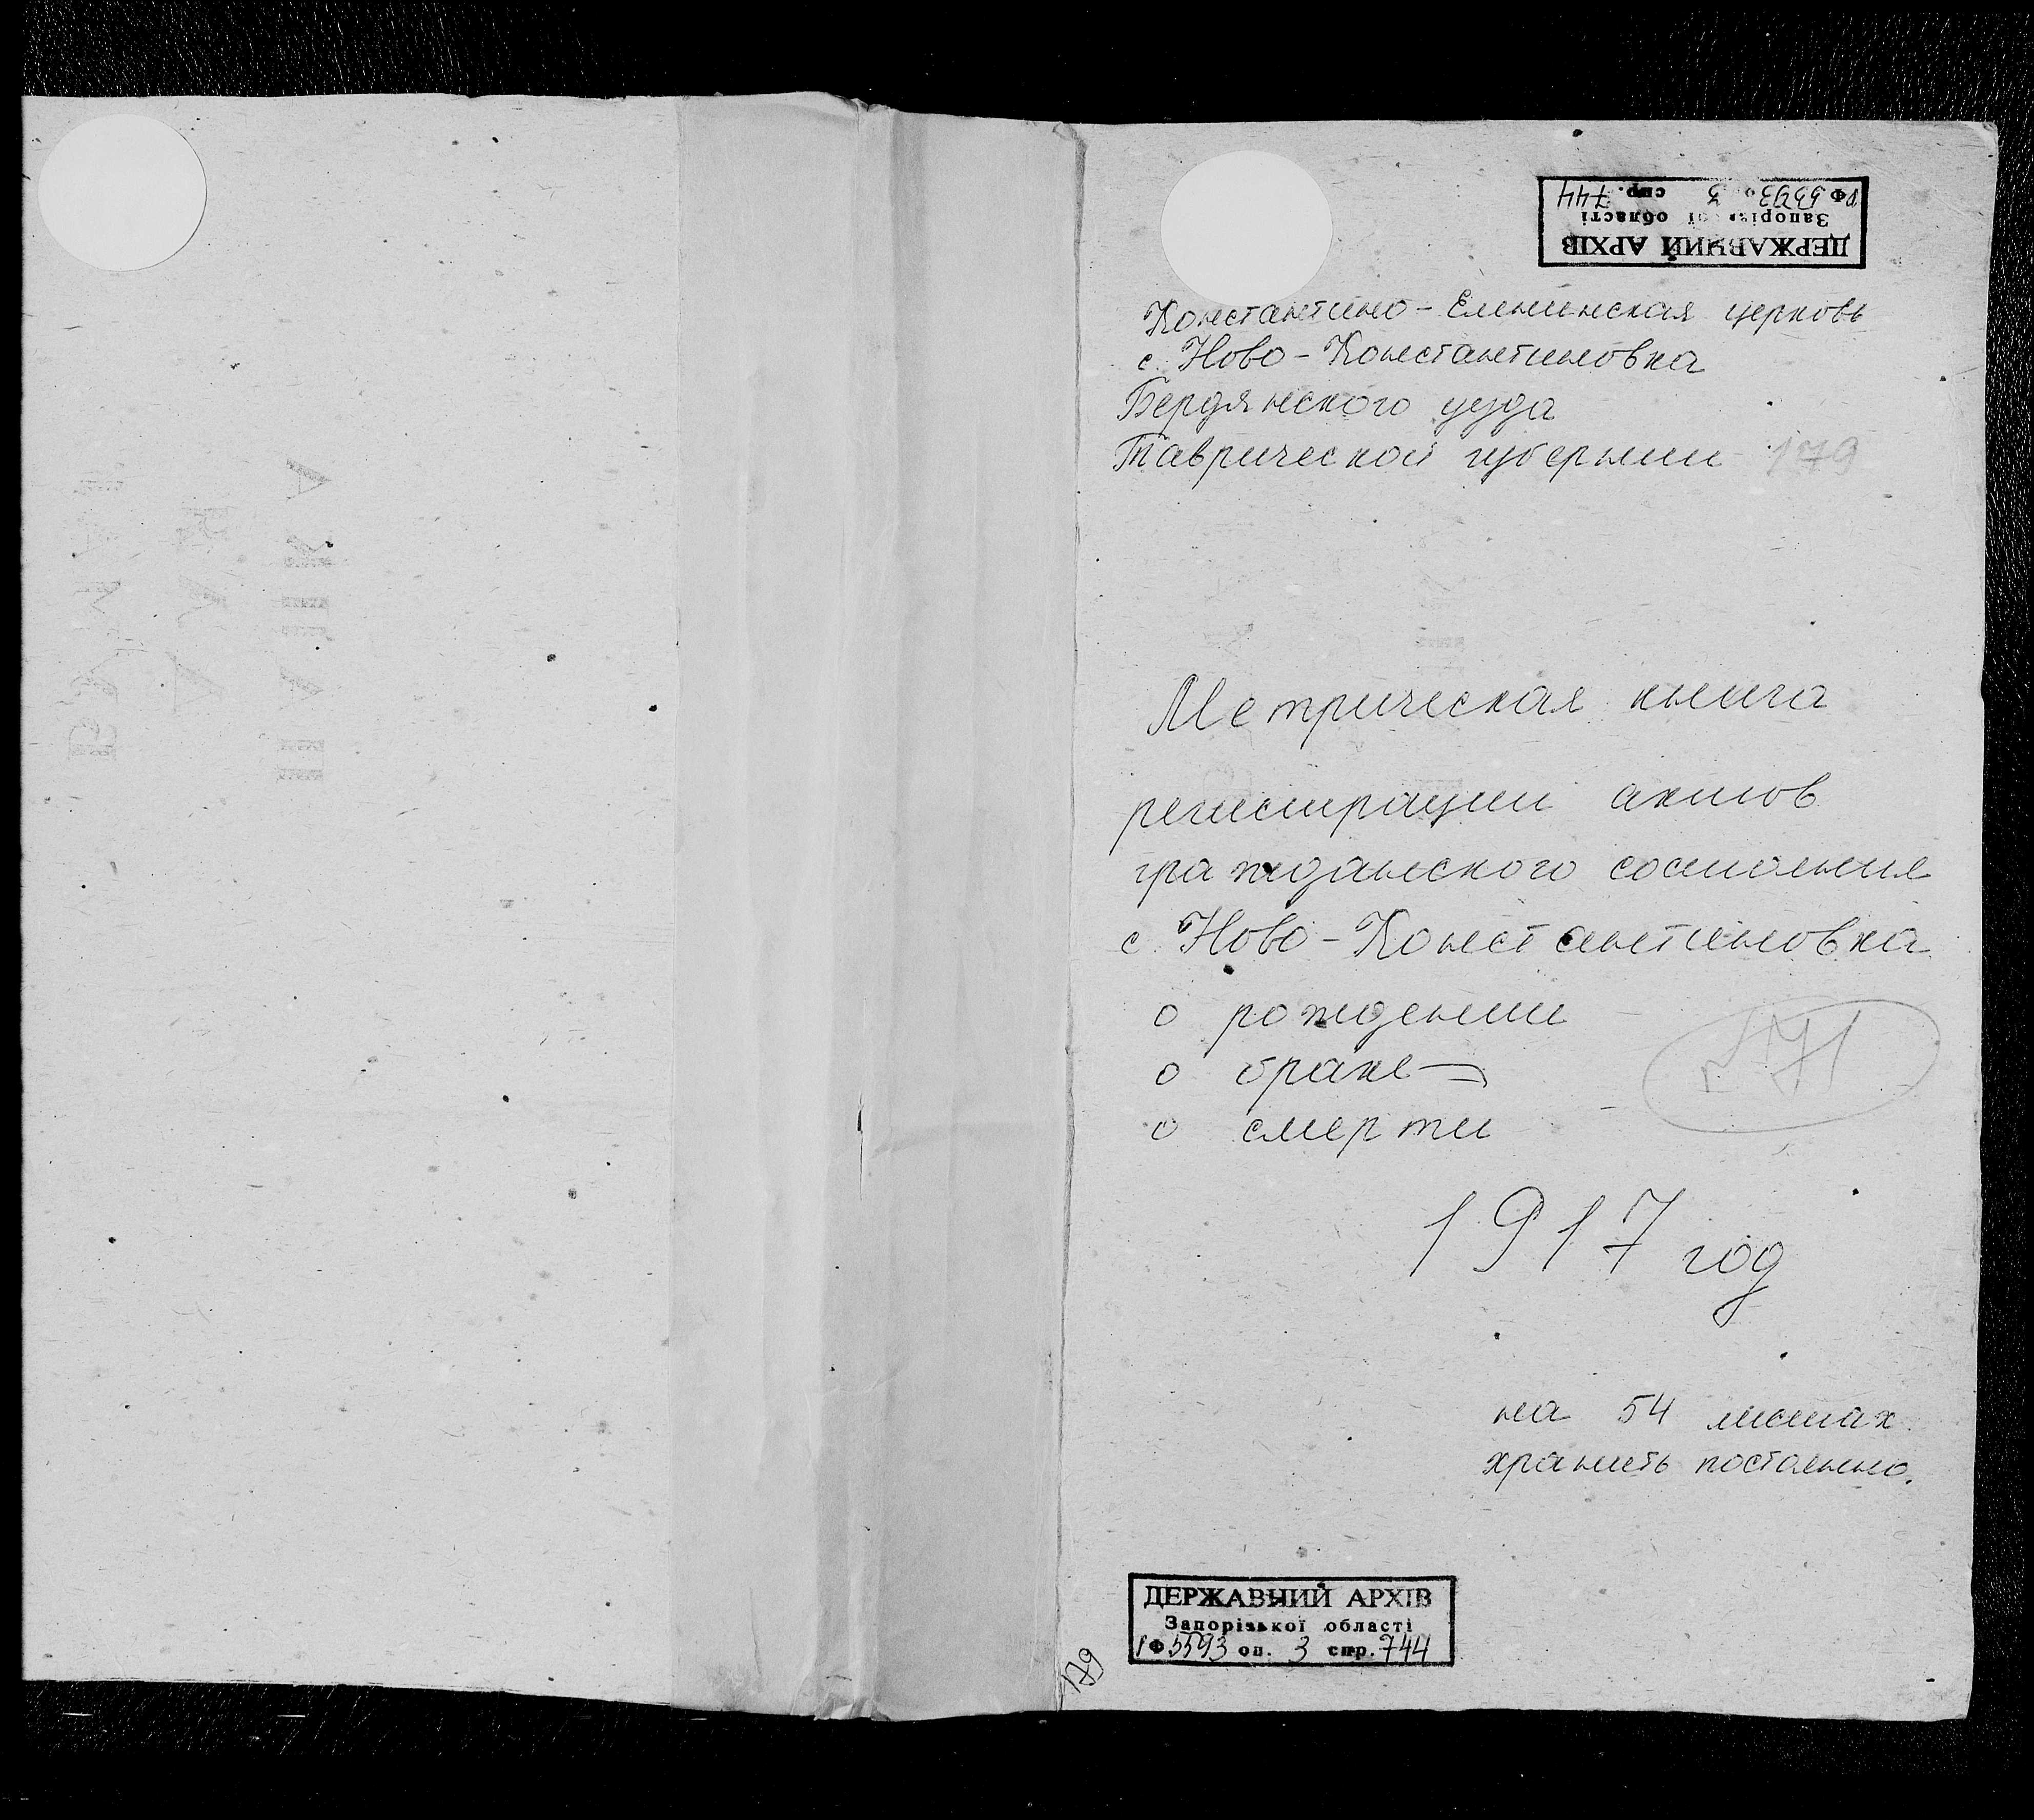 ДЕРЖАВНИЙ АРХІВ
Запорізької області
Ф 5593 3 спр. 744
Константино-Еленинская церковь
с. Ново-Константиновка
Бердянского уезда
Таврической губернии 179
Метрическая книга
регистрации актов
гражданского состояния
с. Ново-Константиновка
о рождении
о браке
о смерти
1917 год
на 54 листах
хранить постоянно.
ДЕРЖАВНИЙ АРХІВ
Запорізької області
Ф 5593 оп. 3 спр. 744
179